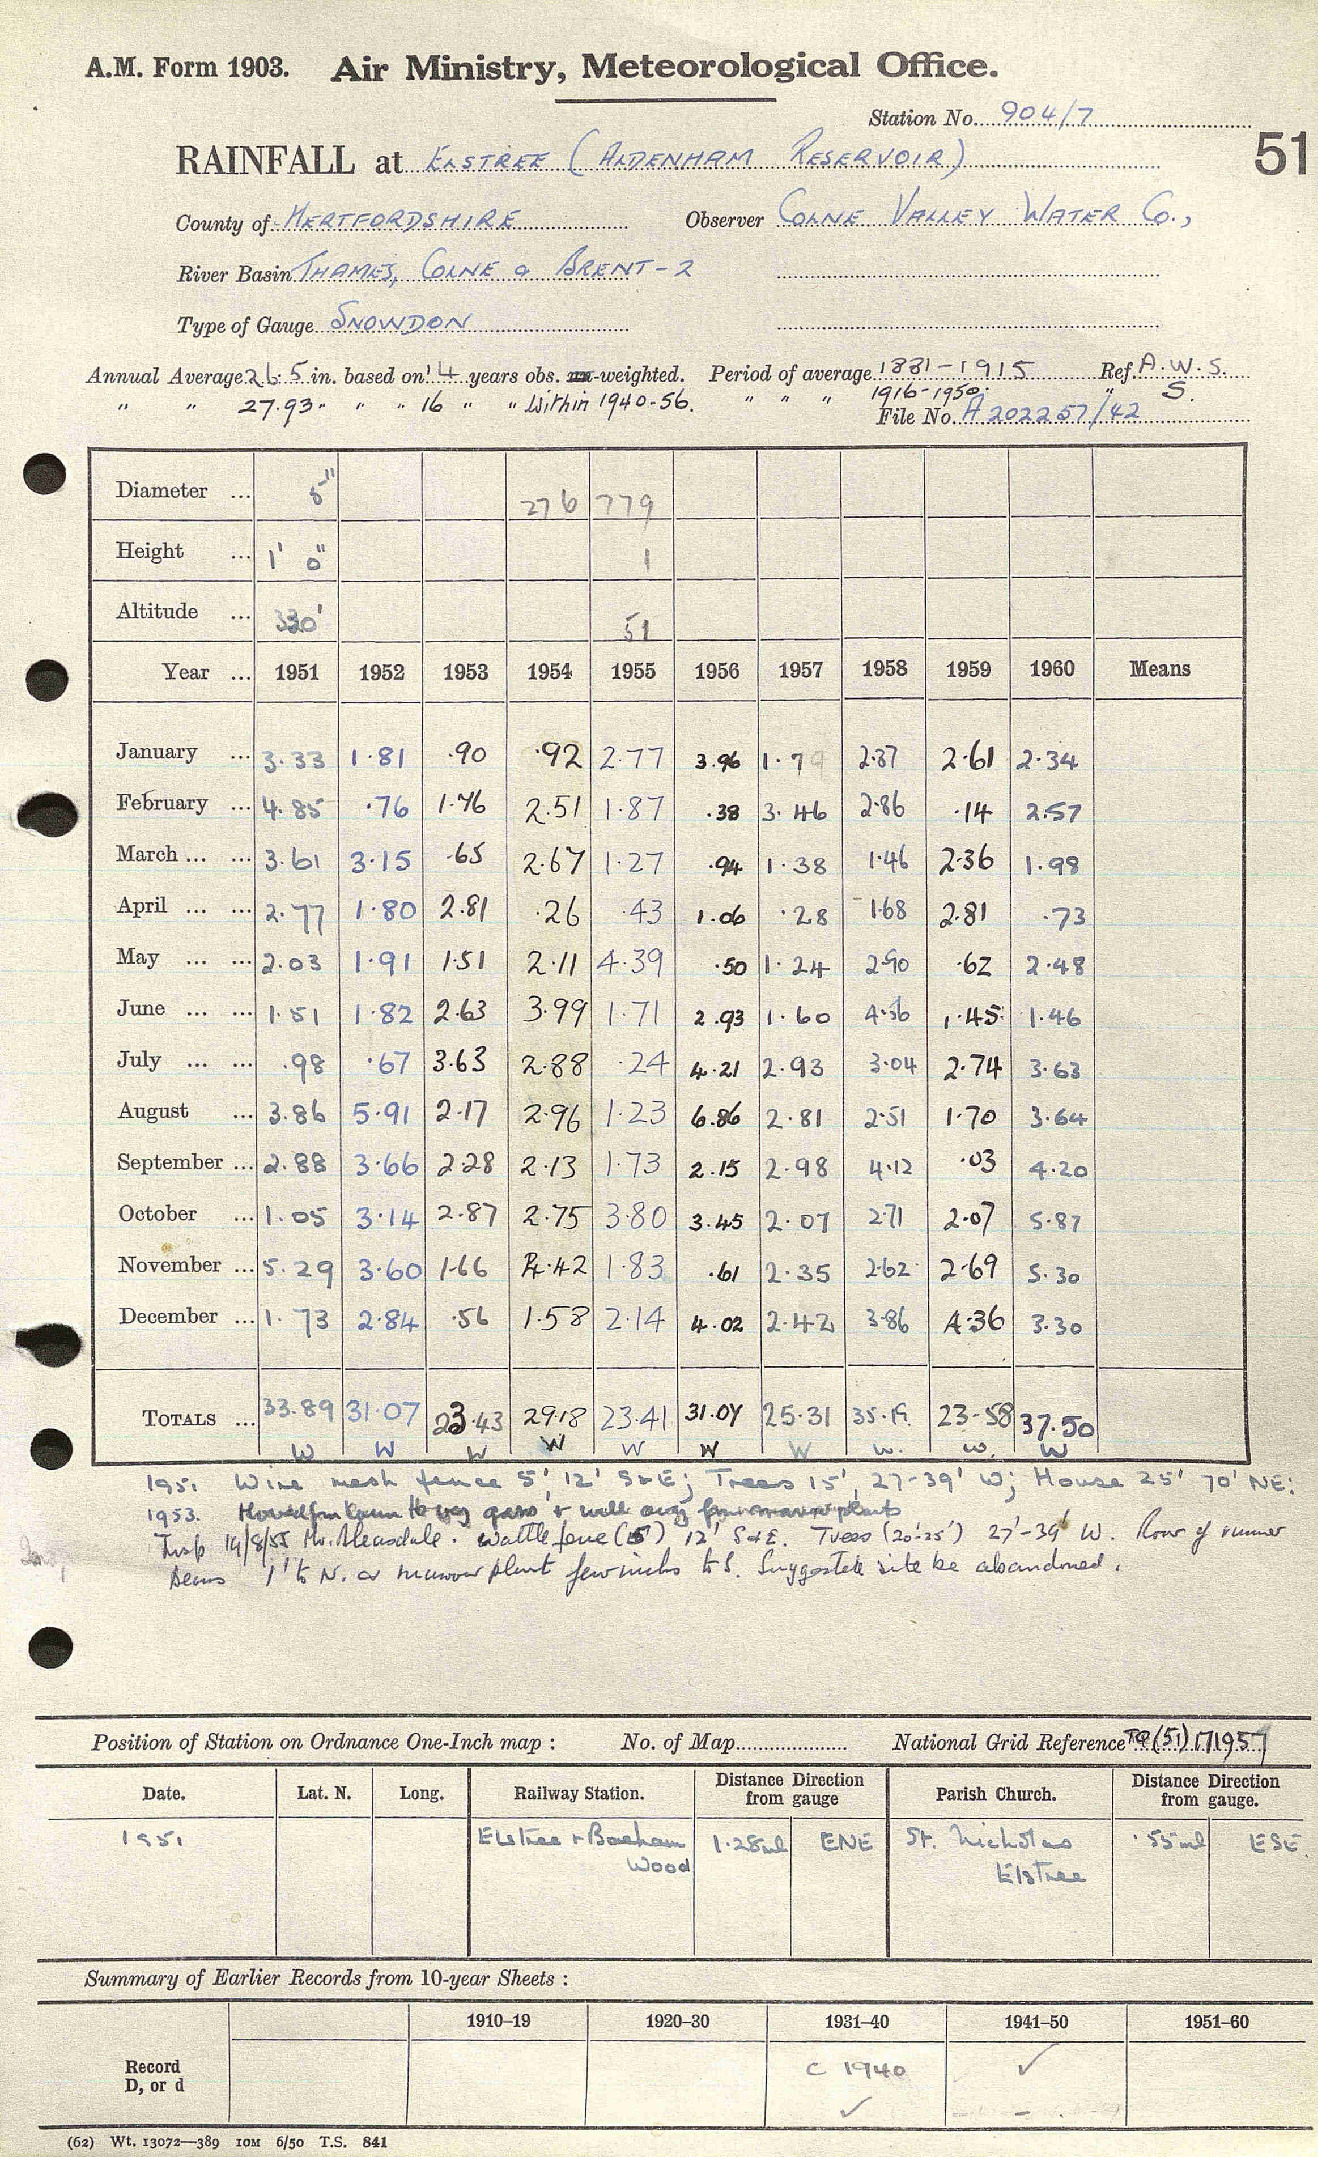 A.M. Form 1903. Air Ministry, Meteorological Office.
Station No. 904/7
51
RAINFALL at ELSTREE (ALDENHAM RESERVOIR)
County of HERTFORDSHIRE Observer COLNE VALLEY WATER CO.,
River Basin THAMES, COLNE & BRENT-2
Type of Gauge SNOWDON
Annual Average 26.5 in. based on 14 years obs. un-weighted. Period of average 1881-1915 Ref. A.W.S.
" " 27.93 " " " 16 " " Within 1940-56. " " " 1916-1950. " S.
File No. A 202257/42
Diameter ... 5" 276 779
Height ... 1' 0" 1
Altitude ... 330' 51
Year ... 1951 1952 1953 1954 1955 1956 1957 1958 1959 1960 Means
January ... 3.33 1.81 .90 .92 2.77 3.96 1.79 2.87 2.61 2.34
February ... 4.85 .76 1.76 2.51 1.87 .38 3.46 2.86 .14 2.57
March ... ... 3.61 3.15 .65 2.67 1.27 .94 1.38 1.46 2.36 1.98
April ... ... 2.77 1.80 2.81 .26 .43 1.06 .28 1.68 2.81 .73
May ... ... 2.03 1.91 1.51 2.11 4.39 .50 1.24 2.90 .62 2.48
June ... ... 1.51 1.82 2.63 3.99 1.71 2.93 1.60 4.56 1.45 1.46
July ... ... .98 .67 3.63 2.88 .24 4.21 2.93 3.04 2.74 3.63
August ... 3.86 5.91 2.17 2.96 1.23 6.86 2.81 2.51 1.70 3.64
September ... 2.88 3.66 2.28 2.13 1.73 2.15 2.98 4.12 .03 4.20
October ... 1.05 3.14 2.87 2.75 3.80 3.45 2.07 2.71 2.07 5.87
November ... 5.29 3.60 1.66 4.42 1.83 .61 2.35 2.62 2.69 5.30
December ... 1.73 2.84 .56 1.58 2.14 4.02 2.42 3.86 4.36 3.30
TOTALS ... 33.89 31.07 23.43 29.18 23.41 31.07 25.31 35.19 23.58 37.50
W W W W W W W W. W. W
1951 Wire mesh fence 5' 12' S & E; Trees 15', 27-39' W; House 25' 70' NE:
1953. Moved from lawn to veg garden & well away from plants
Insp 19/8/55 Mr. Bleasdale. Wattle fence (5') 12' S & E. Trees (20'-25') 27'-39' W. Row of runner
beans 1' to N. a marrow plant few inches to S. Suggested site be abandoned.
Position of Station on Ordnance One-Inch map : No. of Map National Grid Reference TQ (51) 171957
Date. Lat. N. Long. Railway Station. Distance Direction from gauge Parish Church. Distance Direction from gauge.
1951 Elstree & Boreham Wood 1.28 ml ENE St. Nicholas Elstree .55 ml ESE.
Summary of Earlier Records from 10-year Sheets :
1910–19 1920–30 1931–40 1941–50 1951–60
Record D, or d C 1940 ✓
✓
(62) Wt. 13072—389 10M 6/50 T.S. 841